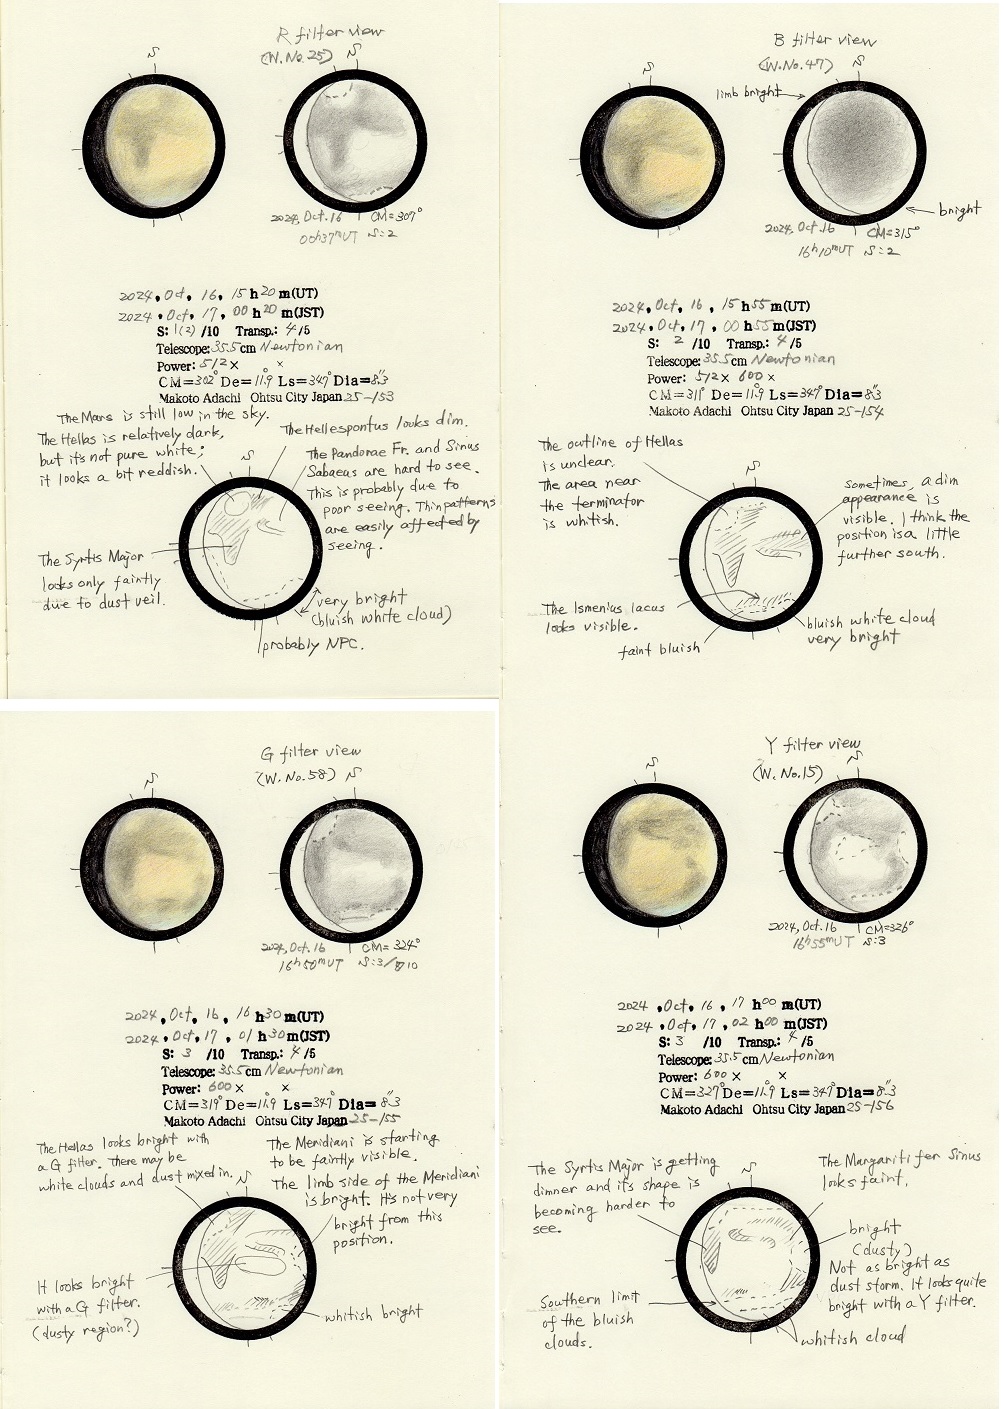 R filter view
(W. No. 25)
S
S
2024, Oct. 16 CM=307°
00h37mUT S:2
2024, Oct, 16, 15 h 20 m(UT)
2024, Oct, 17, 00 h 20 m(JST)
S: 1(2) /10 Transp.: 4 /5
Telescope: 35.5 cm Newtonian
Power: 512 × ×
CM=302° De=11.9° Ls=347° Dia=8.3"
Makoto Adachi Ohtsu City Japan 25-153
The Mars is still low in the sky.
The Hellas is relatively dark,
but it's not pure white;
it looks a bit reddish.
The Hellespontus looks dim.
S
The Pandorae Fr. and Sinus
Sabaeus are hard to see.
This is probably due to
poor seeing. Thin patterns
are easily affected by
seeing.
The Syrtis Major
looks only faintly
due to dust veil.
very bright
(bluish white cloud)
probably NPC.
B filter view
(W. No. 47)
S
S
limb bright
bright
2024, Oct. 16 CM=315°
16h10mUT S:2
2024, Oct, 16, 15 h 55 m(UT)
2024, Oct, 17, 00 h 55 m(JST)
S: 2 /10 Transp.: 4 /5
Telescope: 35.5 cm Newtonian
Power: 512 × 600 ×
CM=311° De=11.9° Ls=347° Dia=8.3"
Makoto Adachi Ohtsu City Japan 25-154
The outline of Hellas
is unclear.
The area near
the terminator
is whitish.
S
Sometimes, a dim
appearance is
visible. I think the
position is a little
further south.
The Ismenius lacus
looks visible.
faint bluish
bluish white cloud
very bright
G filter view
(W. No. 58)
S
S
2024, Oct. 16 CM=324°
16h50mUT S:3/10
2024, Oct, 16, 16 h 30 m(UT)
2024, Oct, 17, 01 h 30 m(JST)
S: 3 /10 Transp.: 4 /5
Telescope: 35.5 cm Newtonian
Power: 600 × ×
CM=319° De=11.9° Ls=347° Dia=8.3"
Makoto Adachi Ohtsu City Japan 25-155
The Hellas looks bright with
a G filter. There may be
white clouds and dust mixed in.
S
The Meridiani is starting
to be faintly visible.
The limb side of the Meridiani
is bright. It's not very
bright from this
position.
It looks bright
with a G filter.
(dusty region?)
whitish bright
Y filter view
(W. No. 15)
S
S
2024, Oct. 16 CM=326°
16h55mUT S:3
2024, Oct, 16, 17 h 00 m(UT)
2024, Oct, 17, 02 h 00 m(JST)
S: 3 /10 Transp.: 4 /5
Telescope: 35.5 cm Newtonian
Power: 600 × ×
CM=327° De=11.9° Ls=347° Dia=8.3"
Makoto Adachi Ohtsu City Japan 25-156
The Syrtis Major is getting
dimner and its shape is
becoming harder to
see.
S
The Margaritifer Sinus
looks faint.
bright
(dusty)
Not as bright as
dust storm. It looks quite
bright with a Y filter.
Southern limit
of the bluish
clouds.
whitish cloud